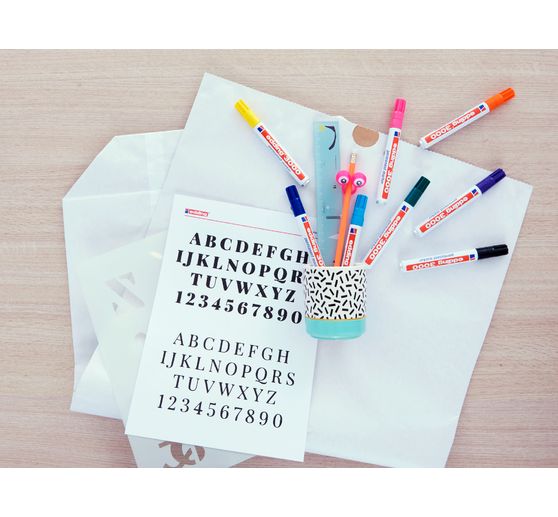 edding
ABCDEFGH
IJKLNOPQR
TUVWXYZ
1234567890
ABCDEFGH
IJKLNOPQRS
TUVWXYZ
1234567890
edding 3000
edding 3000
edding 3000
edding 3000
edding 3000
edding 3000